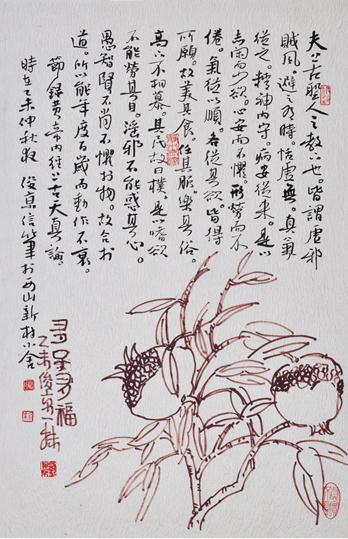 夫上古聖人之教下也。皆謂虛邪
賊風。避之有時。恬虛無。真氣
從之。精神內守。病安從來。是以
志闲而少欲。心安而不懼。形勞而不
倦。氣從以順。各從其欲。皆得
所願。故美其食。任其服。樂其俗。
高下不相慕。其民故曰樸。是以嗜欲
不能勞其目。淫邪不能惑其心。
愚智賢不肖不懼於物。故合於
道。所以能年度百歲而動作不衰。
節錄黃帝內經上古天真論。
時在乙未仲秋 俊京信筆於西山新村小舍
多子多福
乙未俊京